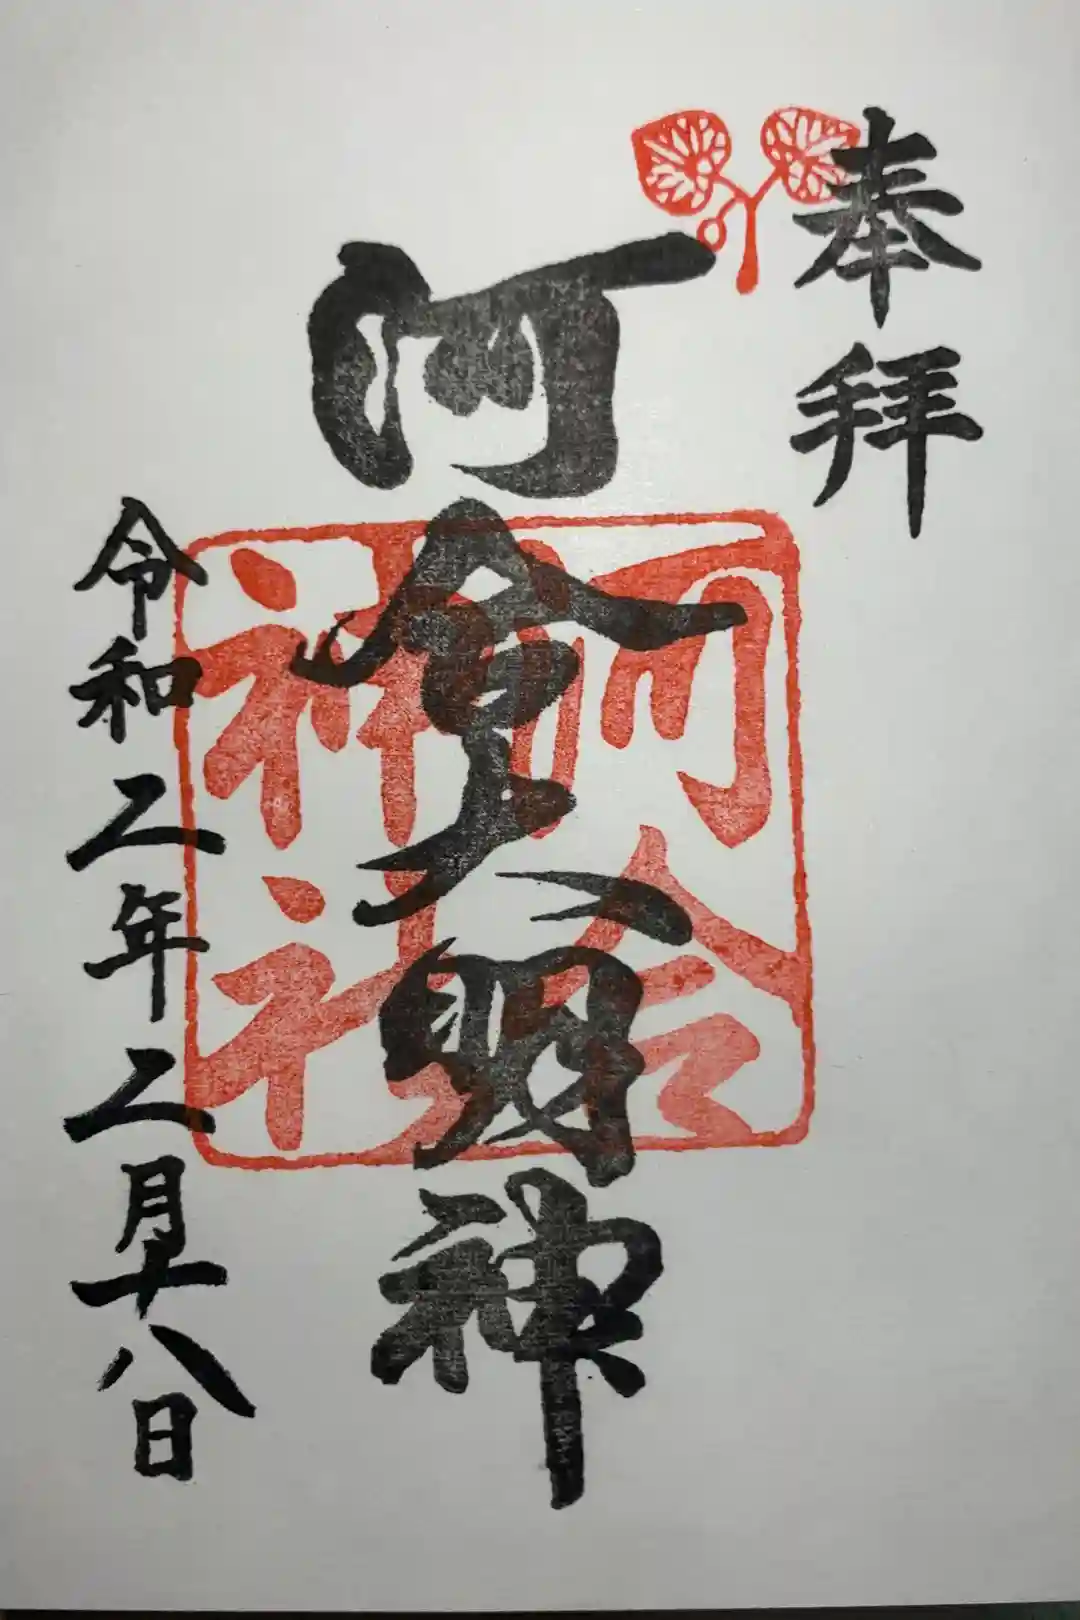 奉拝
河合大明神
河合
神社
令和二年二月十八日